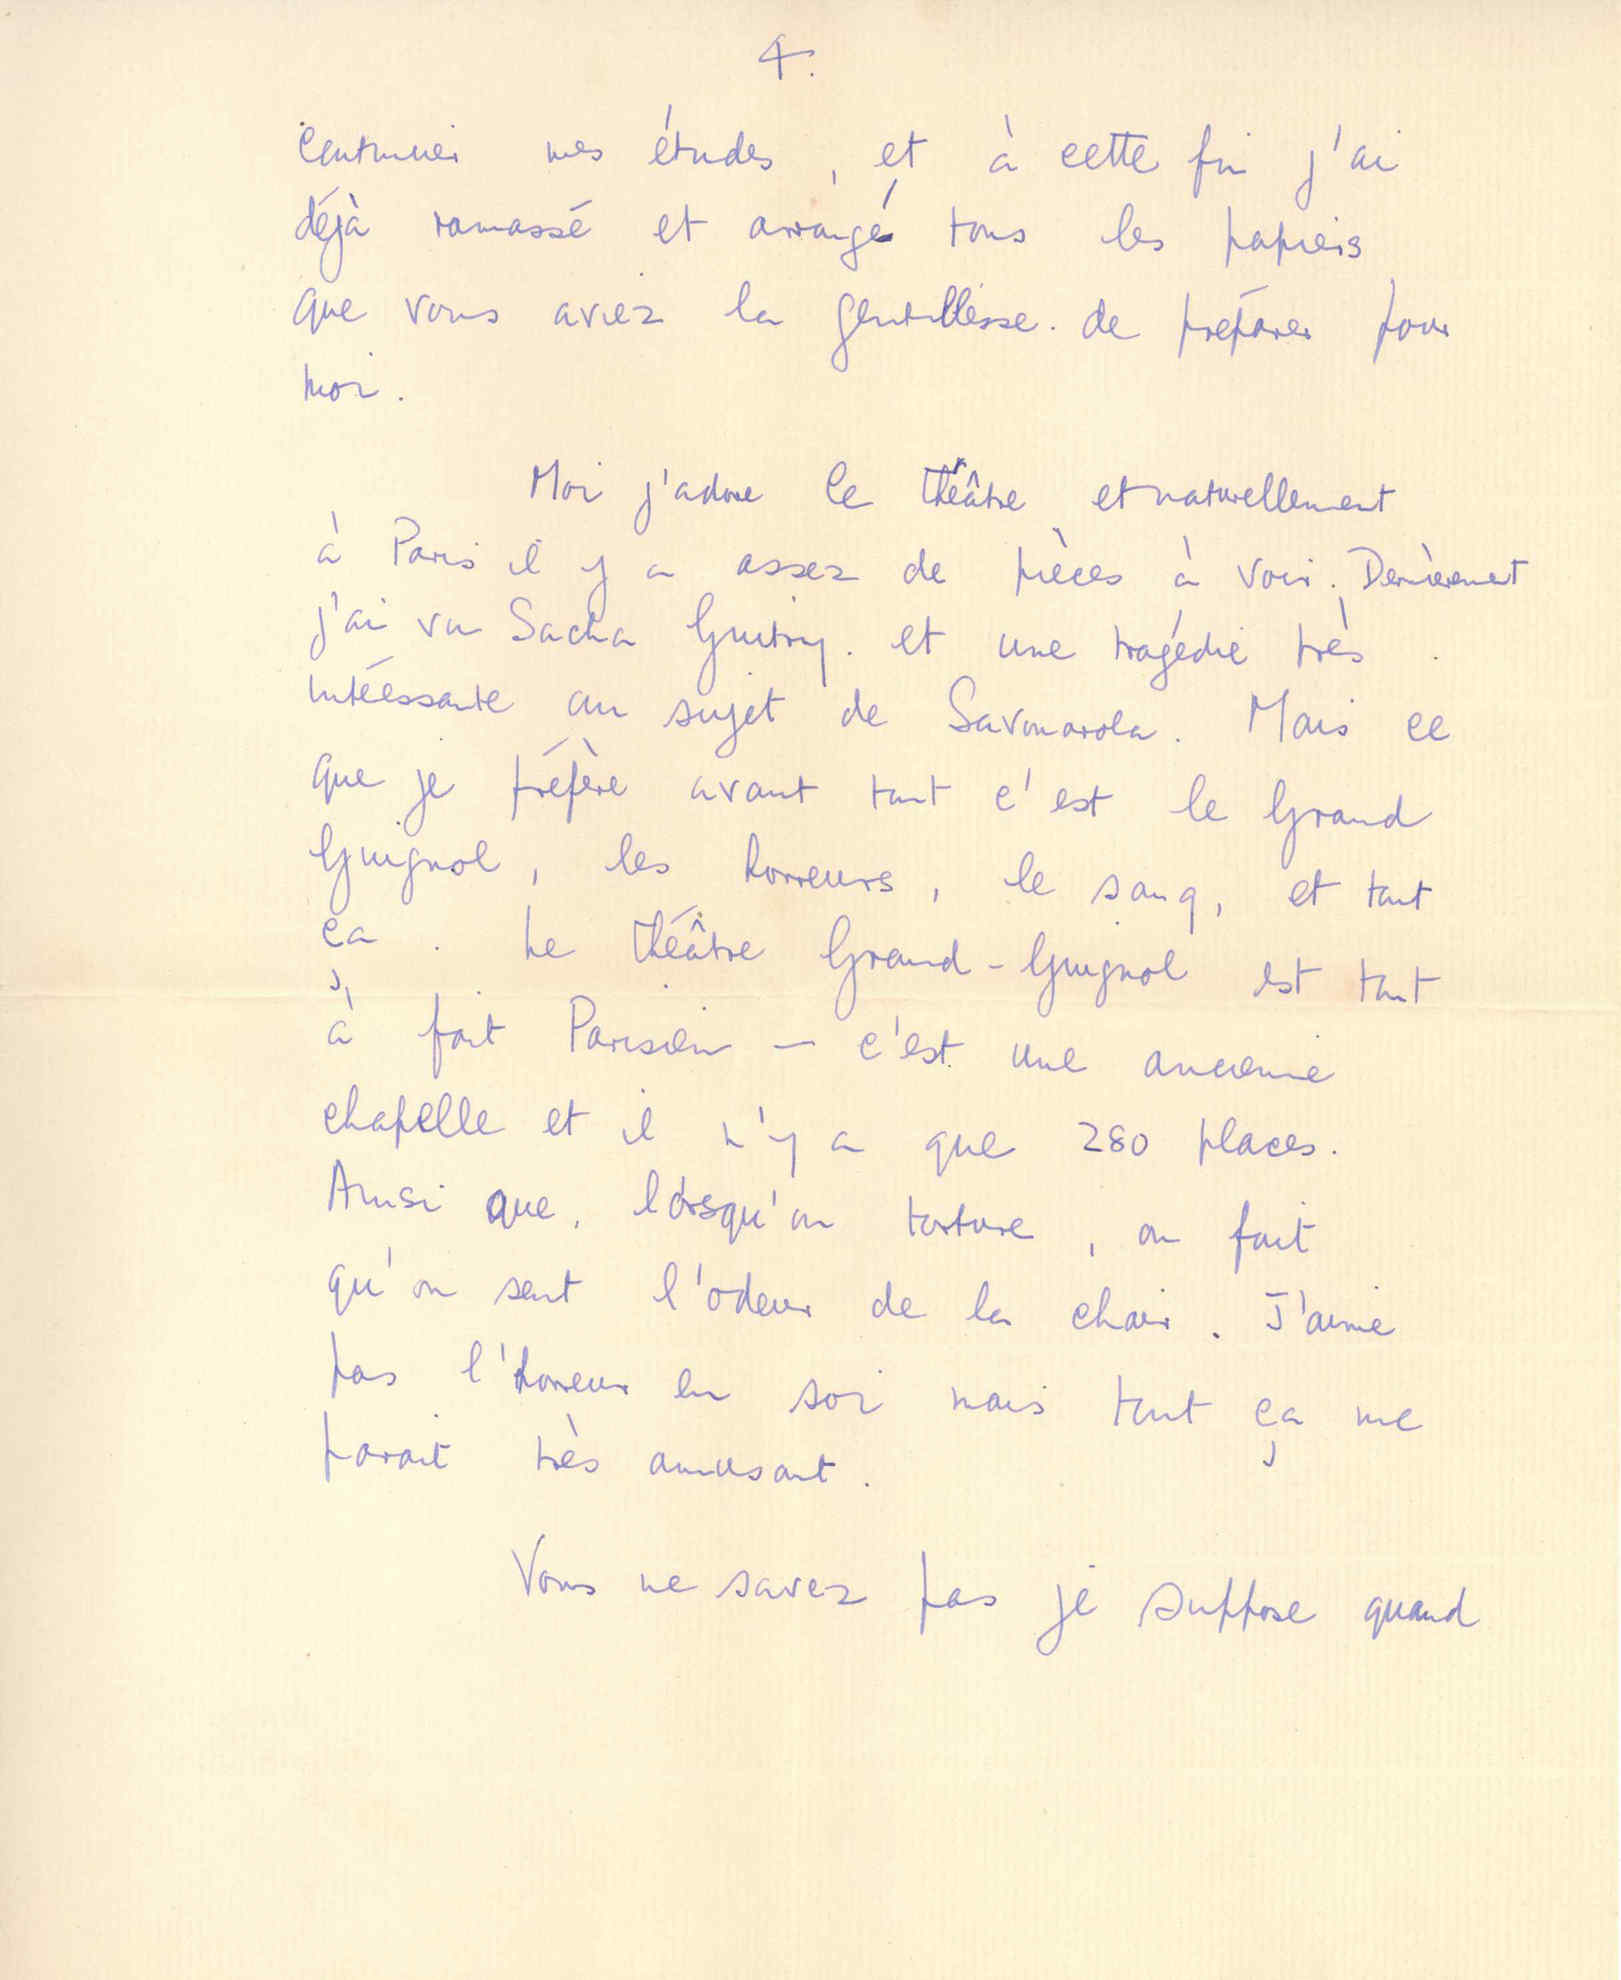 4.
continuer mes études, et à cette fin j'ai
déjà ramassé et arrangé tous les papiers
que vous aviez la gentillesse. de préparer pour
moi.
Moi j'adore le théâtre et naturellement
à Paris il y a assez de pièces à voir. Dernièrement
j'ai vu Sacha Guitry. et une tragédie très
intéessante au sujet de Savonarola. Mais ce
que je préfère avant tout c'est le Grand
Guignol, les horreurs, le sang, et tout
ça. Le théâtre Grand-Guignol est tout
à fait Parisien – c'est une ancienne
chapelle et il n'y a que 280 places.
Ainsi que, lorsqu'on torture, on fait
qu'on sent l'odeur de la chair. J'aime
pas l'horreur en soi mais tout ça me
parait très amusant.
Vous ne savez pas je suppose quand